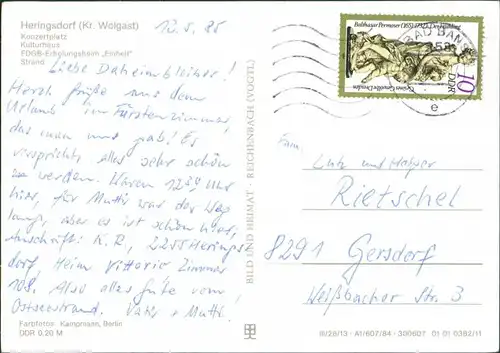 Heringsdorf (Kr. Wolgast)
Konzertplatz
Kulturhaus
FDGB-Erholungsheim „Einheit"
Strand
12.5.85
Liebe Daheimbleiber!
Herzl. Grüße aus dem
Urlaub im Fürstenzimmer,
das man uns gab! Es
verspricht, alles sehr schön
zu werden. Waren 12 24 Uhr
hier, für Mutti war der Weg
lang, aber es ist schön hier,
Anschrift: K. R, 2255 Herings
dorf, Heim Vittorio Zimmer
108. Also alles Gute vom
Ostseestrand. Vater + Mutti.
Farbfotos: Kampmann, Berlin
DDR 0,20 M
BILD UND HEIMAT · REICHENBACH (VOGTL)
Balthasar Permoser (1651-1732)
DDR
10
BAD BAN
e
Fam.
Lutz und Holger
Rietschel
8291 Gersdorf
Weißbacher Str. 3
III/26/13 · A1/607/84 · 300607 01 01 0382/11